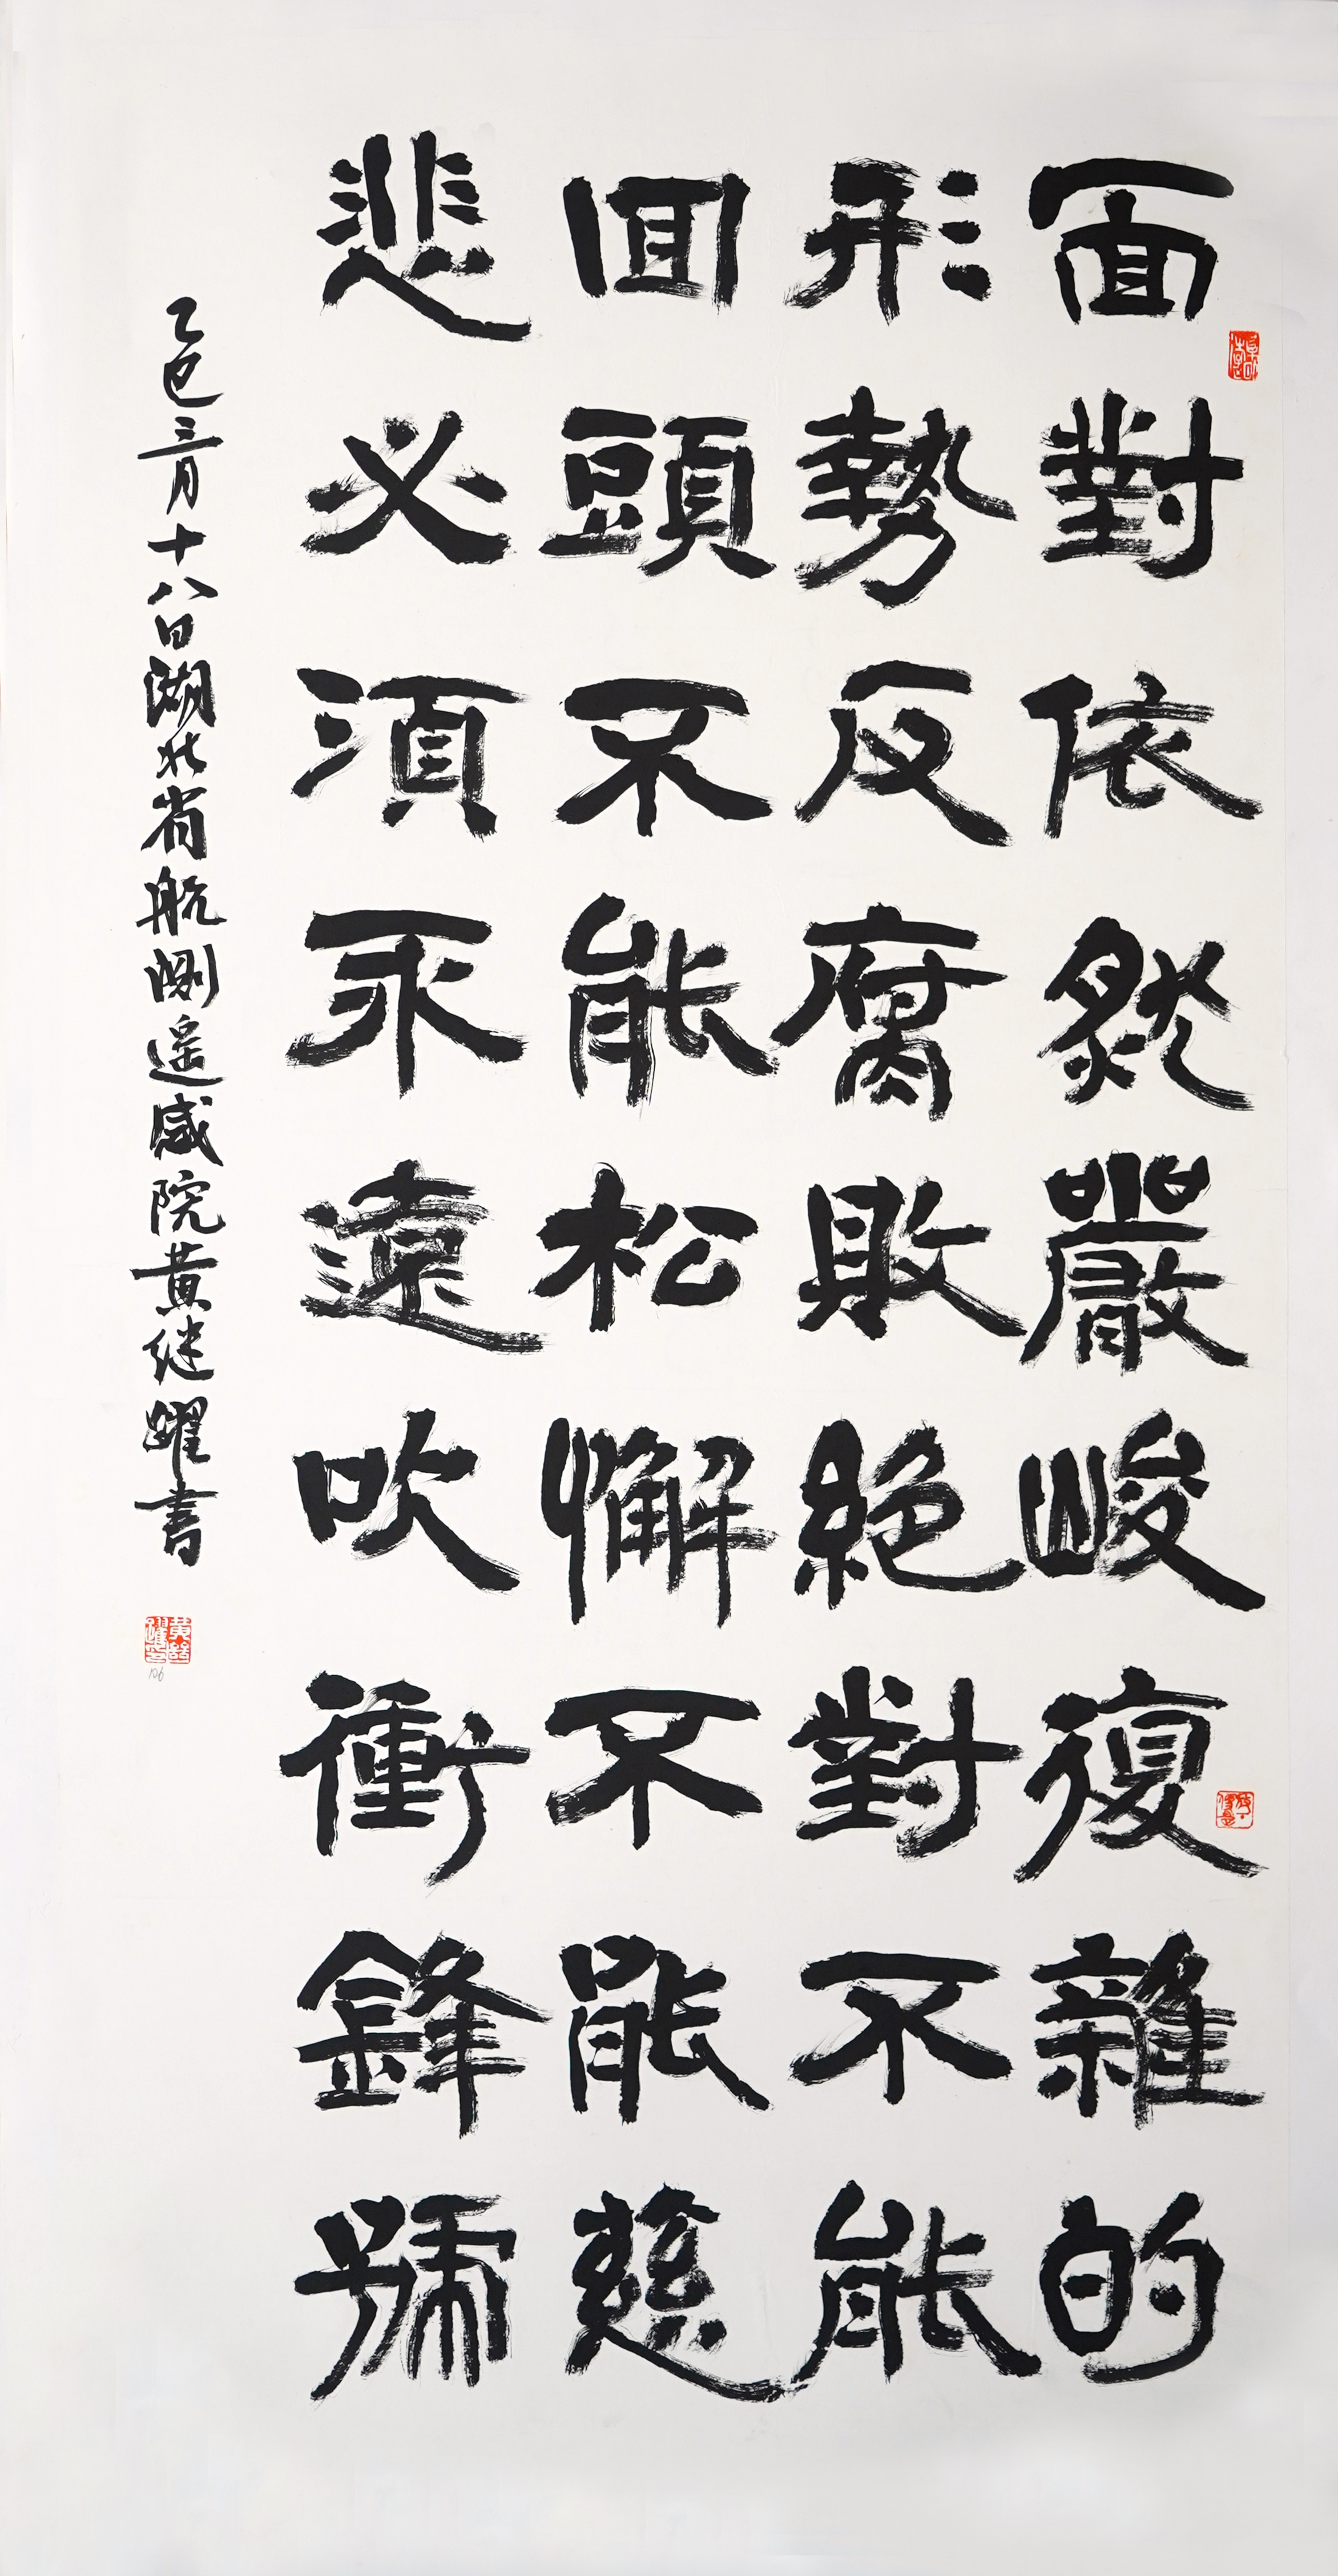 面對依然嚴峻復雜的
形勢反腐敗絕對不能
回頭不能松懈不能慈
悲必須永遠吹衝鋒號
乙巳三月十八日湖北省航測遥感院黄继躍書
106